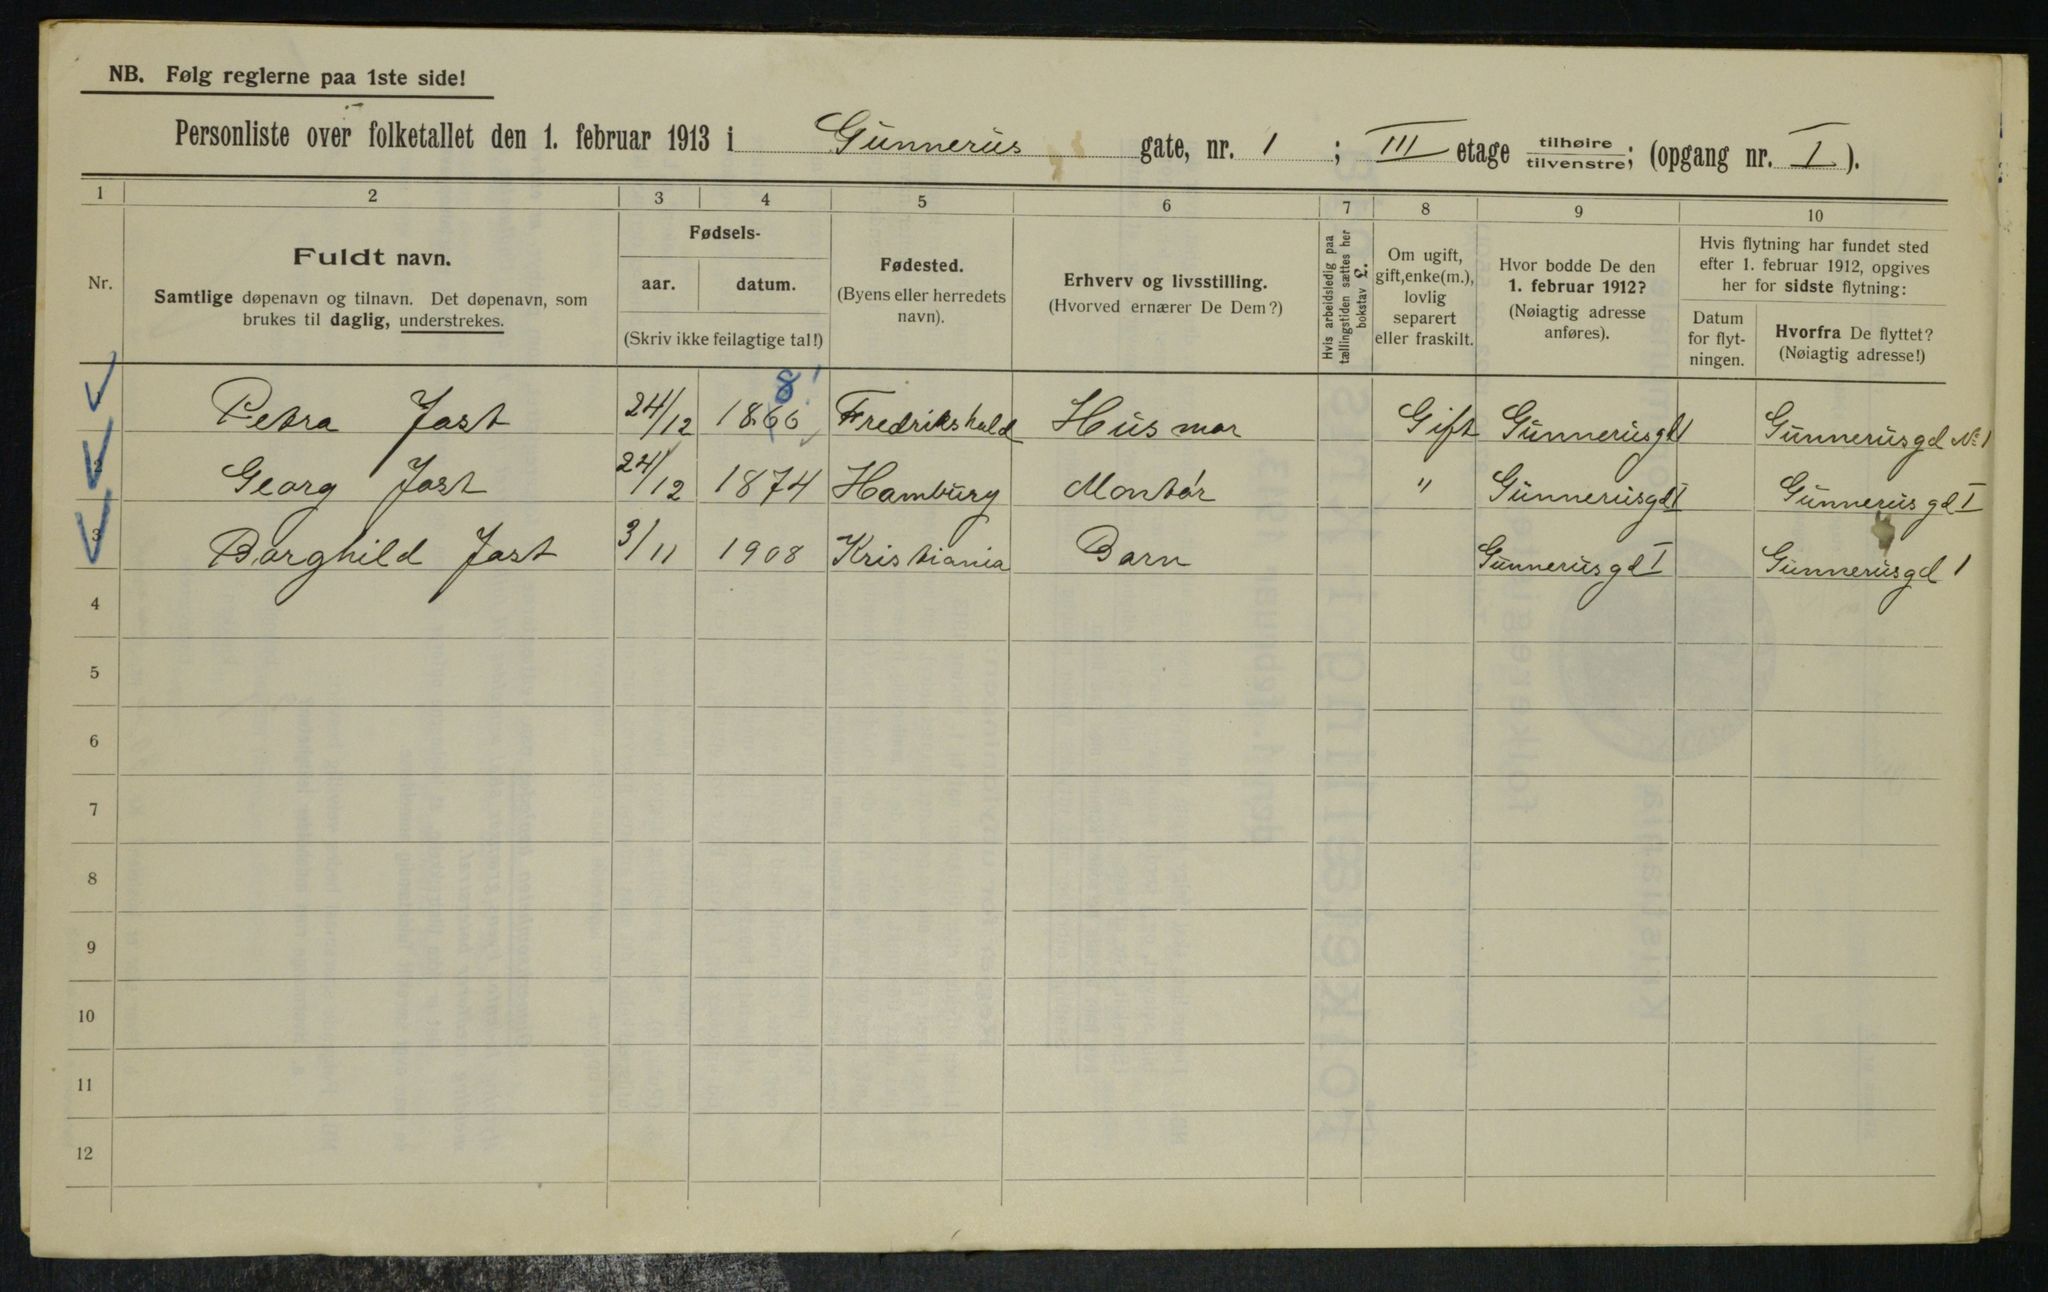 NB. Følg reglerne paa 1ste side!
Personliste over folketallet den 1. februar 1913 i Gunnerus gate, nr. 1 ; III etage tilhøire tilvenstre; (opgang nr. I ).
1 2 3 4 5 6 7 8 9 10
Nr.
Fuldt navn.
Samtlige døpenavn og tilnavn. Det døpenavn, som
brukes til daglig, understrekes.
Fødsels-
aar. datum.
(Skriv ikke feilagtige tal!)
Fødested.
(Byens eller herredets
navn).
Erhverv og livsstilling.
(Hvorved ernærer De Dem?)
Hvis arbeidsledig paa
tællingstiden sættes her
bokstav L.
Om ugift,
gift, enke(m.),
lovlig
separert
eller fraskilt.
Hvor bodde De den
1. februar 1912?
(Nøiagtig adresse
anføres).
Hvis flytning har fundet sted
efter 1. februar 1912, opgives
her for sidste flytning:
Datum
for flyt-
ningen.
Hvorfra De flyttet?
(Nøiagtig adresse!)
8!
Petra Jost 24/12 1866 Fredrikshald Husmor Gift Gunnerusgd 1 Gunnerusgd No 1
2 Georg Jost 24/12 1874 Hamburg Montør " Gunnerusgd I Gunnerusgd I
3 Borghild Jost 3/11 1908 Kristiania Barn Gunnerusgd I Gunnerusgd 1
4
5
6
7
8
9
10
11
12